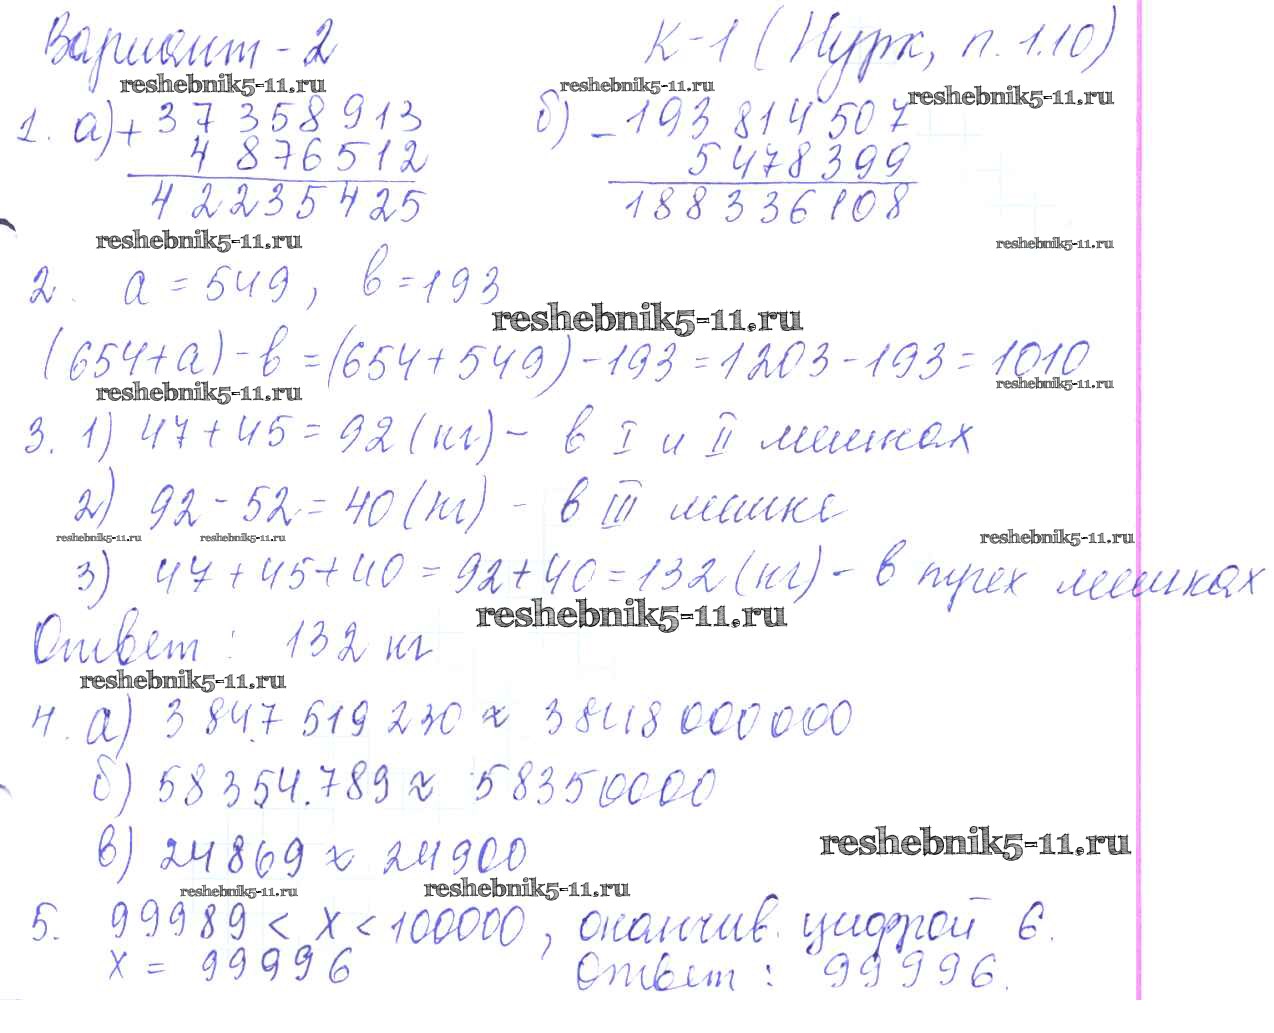 Вариант - 2 К-1 (Нурк, п. 1.10)
reshebnik5-11.ru reshebnik5-11.ru reshebnik5-11.ru
1. а) + 37 358 913 б) - 193 814 507
4 876 512 5 478 399
42235425 188336108
reshebnik5-11.ru reshebnik5-11.ru
2. a = 549, в = 193
reshebnik5-11.ru
(654+а) - в = (654 + 549) - 193 = 1203 - 193 = 1010
reshebnik5-11.ru reshebnik5-11.ru
3. 1) 47 + 45 = 92 (кг) - в I и II мешках
2) 92 - 52 = 40 (кг) - в III мешке
reshebnik5-11.ru reshebnik5-11.ru reshebnik5-11.ru
3) 47 + 45 + 40 = 92 + 40 = 132 (кг) - в трех мешках
reshebnik5-11.ru
Ответ: 132 кг
reshebnik5-11.ru
4. а) 3 847 519 230 ≈ 3848 000 000
б) 58 354.789 ≈ 58350000
в) 24 869 ≈ 24900
reshebnik5-11.ru
reshebnik5-11.ru reshebnik5-11.ru
5. 99989 < х < 100000, оканчив. цифрой 6.
х = 99996 Ответ: 99996.